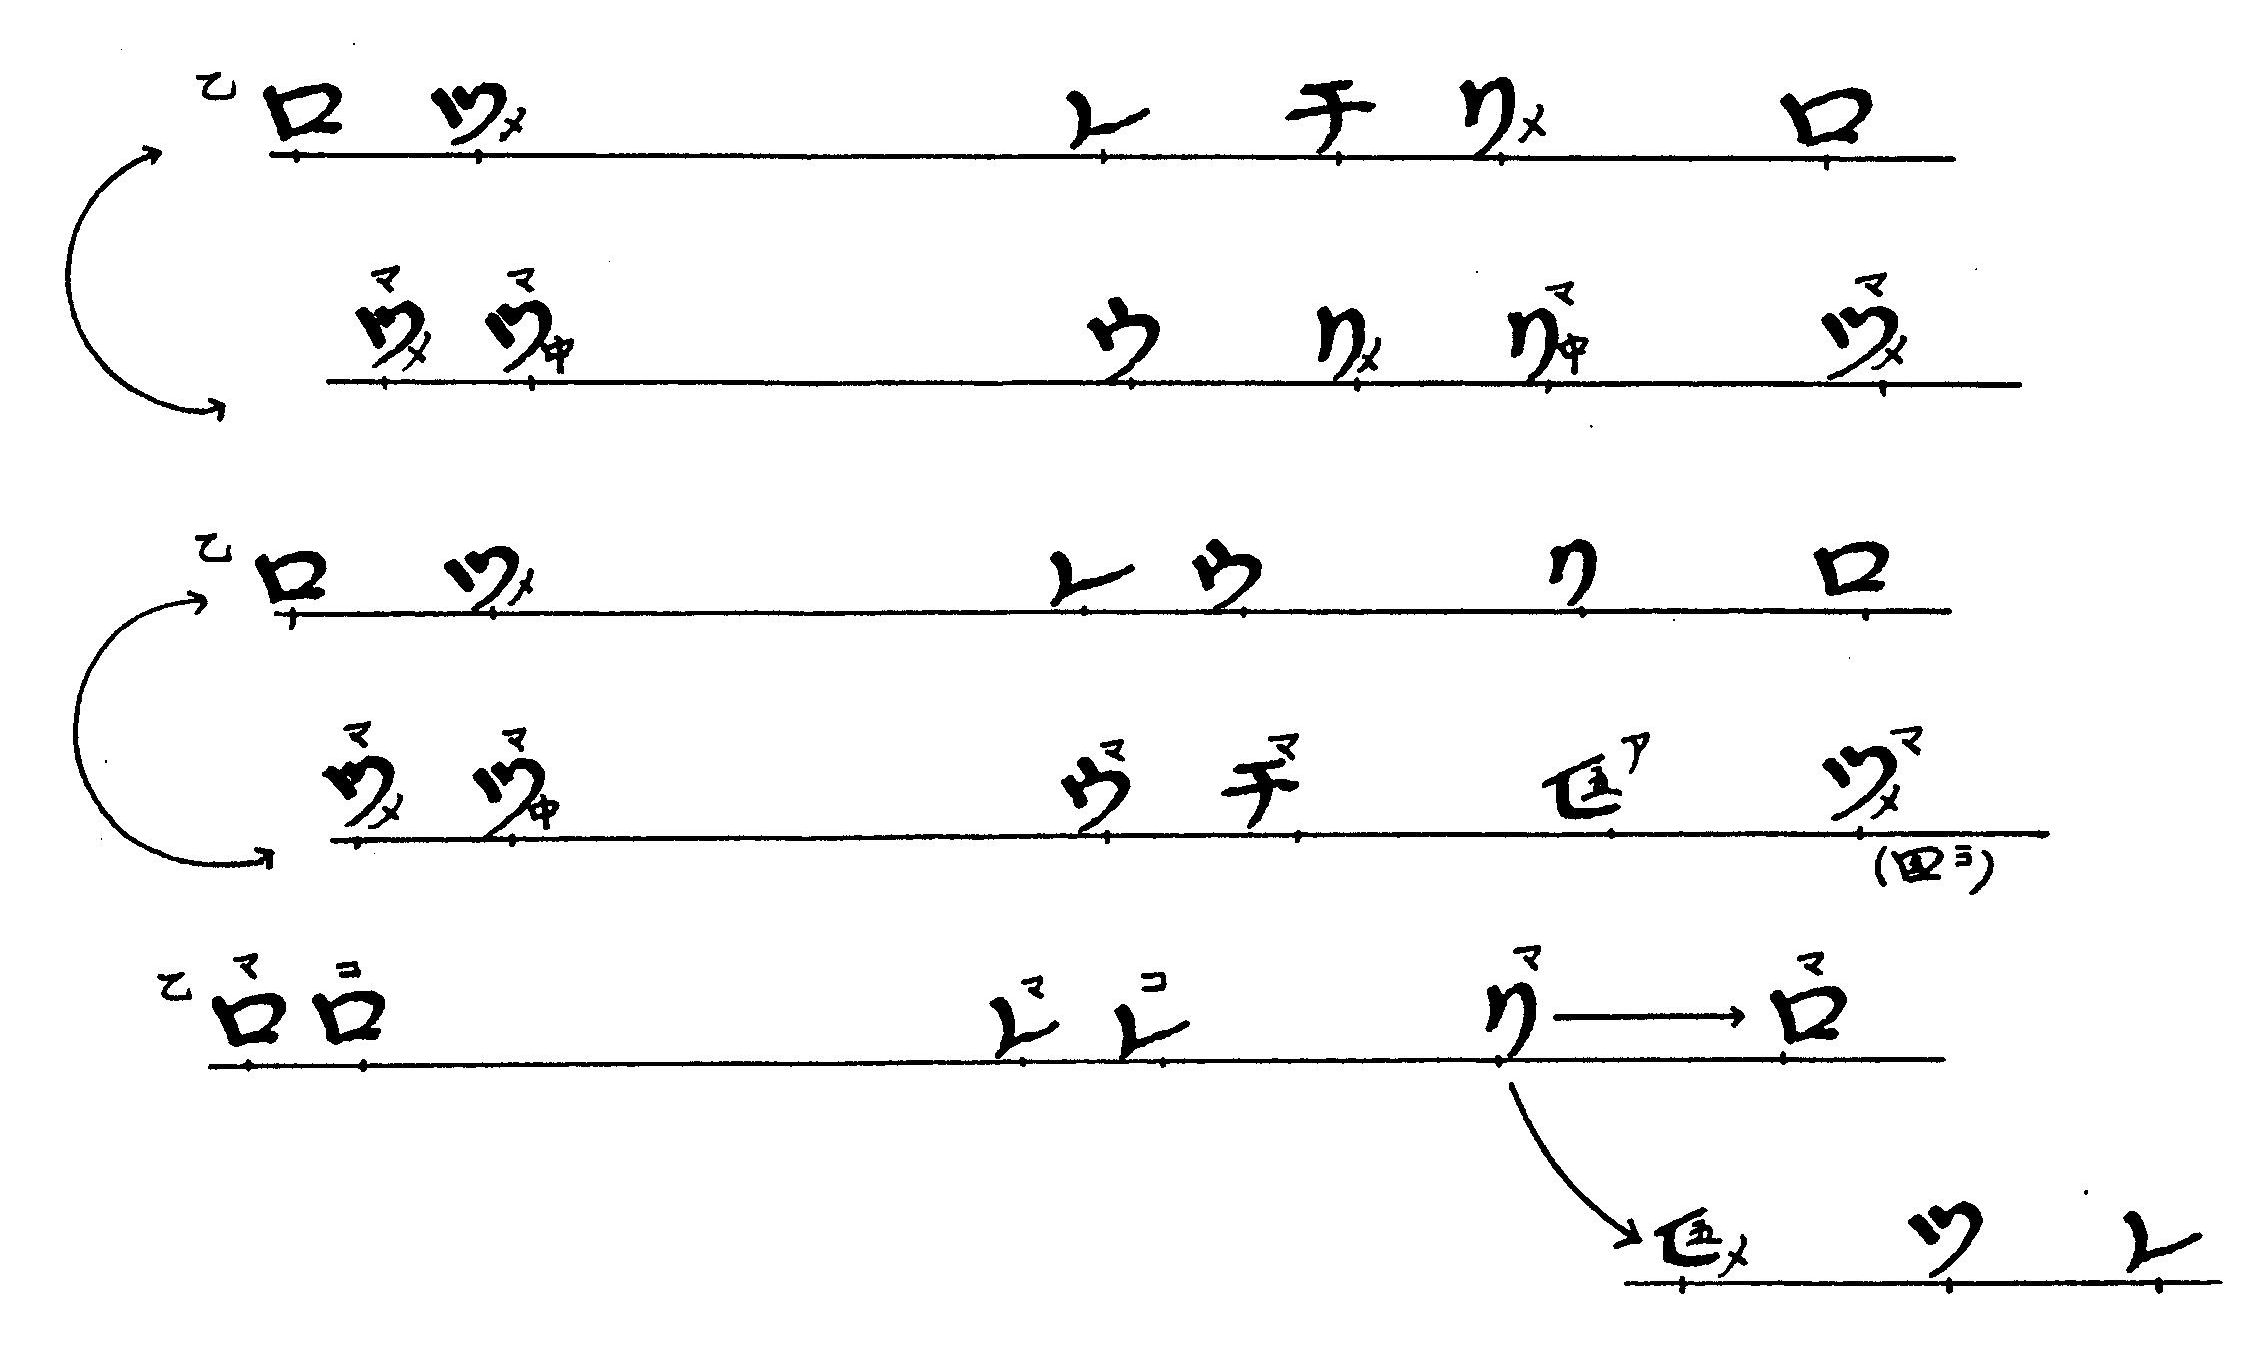 乙 ロ ツメ レ チ リメ ロ
ツメマ ツ中マ ウ リメ リ中マ ツメマ
乙 ロ ツメ レ ウ リ ロ
ツメマ ツ中マ ウマ チマ 五ア ツメマ
(五コ)
乙 ロマ ロコ レマ レコ リマ ロマ
五メ ツ レ